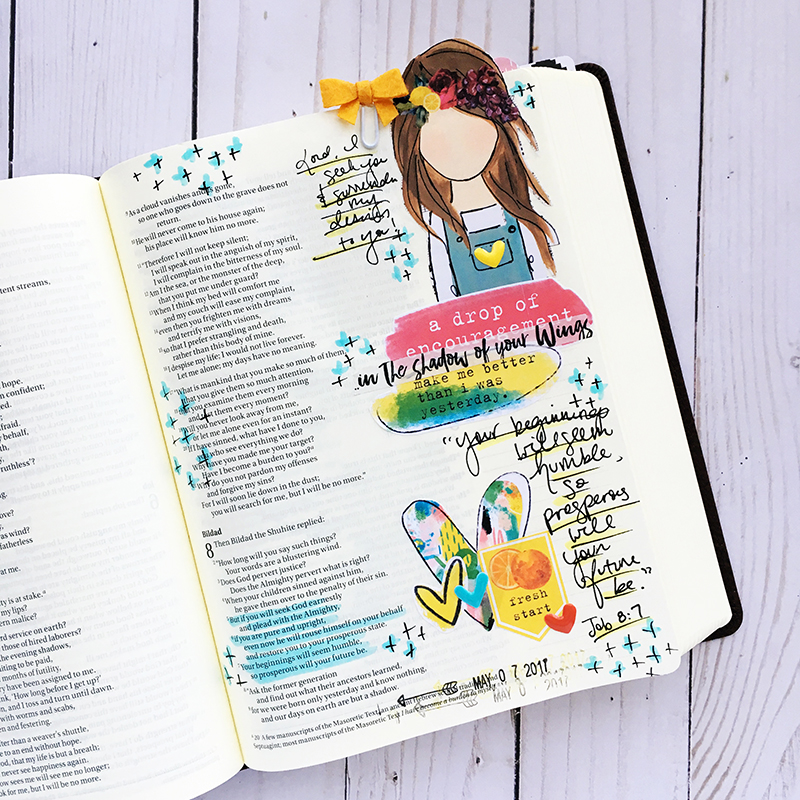 tent streams,
hope.
n confident;
d.
afraid.
y behalf,
th,
ruthless'?
ove?
was wind?
fatherless
at me.
ty is at stake."
my lips?
rn malice?
rd service on earth?
those of hired laborers?
the evening shadows,
iting to be paid,
months of futility,
ery have been assigned to me.
k, 'How long before I get up?'
n, and I toss and turn until dawn.
with worms and scabs,
en and festering.
fter than a weaver's shuttle,
e to an end without hope.
od, that my life is but a breath;
never see happiness again.
ow sees me will see me no longer;
k for me, but I will be no more.
9 As a cloud vanishes and is gone,
so one who goes down to the grave does not
return.
10 He will never come to his house again;
his place will know him no more.
11 "Therefore I will not keep silent;
I will speak out in the anguish of my spirit,
I will complain in the bitterness of my soul.
Am I the sea, or the monster of the deep,
that you put me under guard?
When I think my bed will comfort me
and my couch will ease my complaint,
even then you frighten me with dreams
and terrify me with visions,
so that I prefer strangling and death,
rather than this body of mine.
I despise my life; I would not live forever.
Let me alone; my days have no meaning.
"What is mankind that you make so much of them,
that you give them so much attention,
that you examine them every morning
and test them every moment?
Will you never look away from me,
or let me alone even for an instant?
If I have sinned, what have I done to you,
you who see everything we do?
Why have you made me your target?
Have I become a burden to you?
Why do you not pardon my offenses
and forgive my sins?
For I will soon lie down in the dust;
you will search for me, but I will be no more."
Bildad
8 Then Bildad the Shuhite replied:
2 "How long will you say such things?
Your words are a blustering wind.
3 Does God pervert justice?
Does the Almighty pervert what is right?
4 When your children sinned against him,
he gave them over to the penalty of their sin.
5 But if you will seek God earnestly
and plead with the Almighty,
6 if you are pure and upright,
even now he will rouse himself on your behalf
and restore you to your prosperous state.
7 Your beginnings will seem humble,
so prosperous will your future be.
8 "Ask the former generation
and find out what their ancestors learned,
9 for we were born only yesterday and know nothing,
and our days on earth are but a shadow.
20 A few manuscripts of the Masoretic Text, an ancient Hebrew scribal tradition and
Septuagint; most manuscripts of the Masoretic Text I have become a burden to myself.
Lord, I
seek you
& surrender
my
desires
to you!
a drop of
encouragement
in the shadow of your Wings
make me better
than i was
yesterday.
"Your beginnings
will seem
humble,
so
prosperous
will
your
future
be."
Job 8:7
fresh
start
MAY 0 7 2017
MAY 0 7 2017